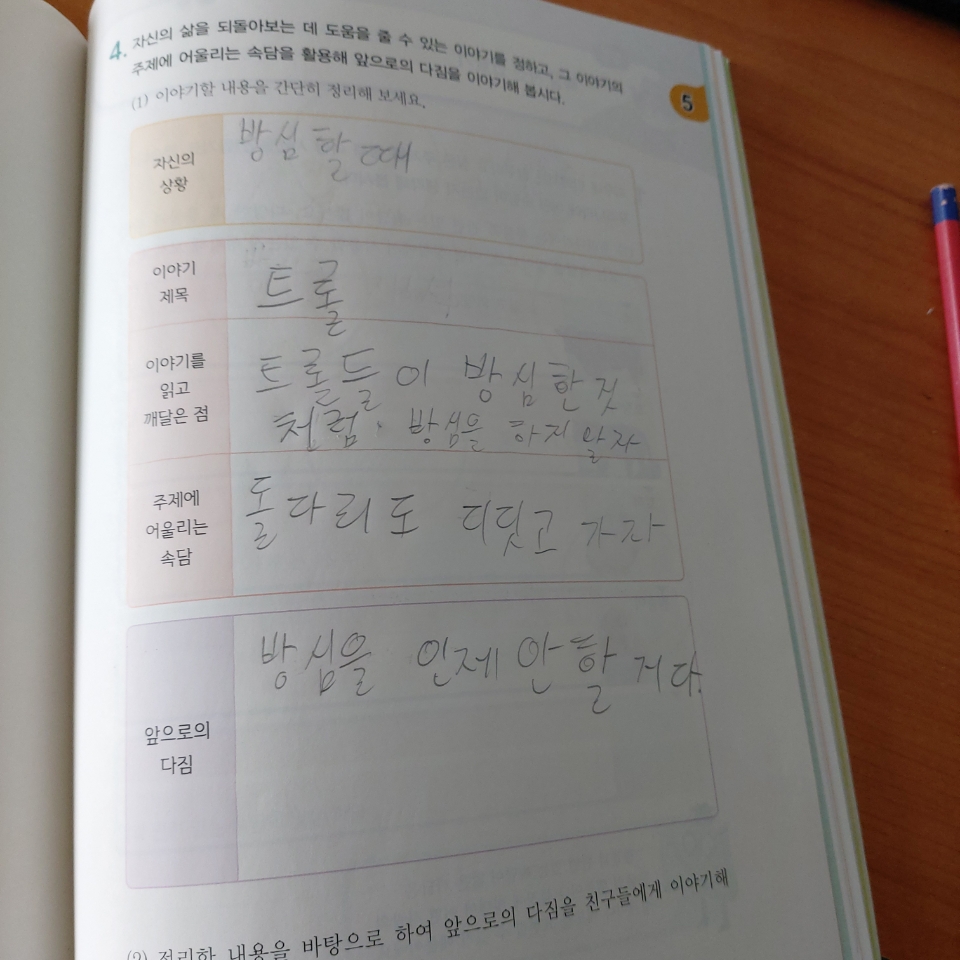 4. 자신의 삶을 되돌아보는 데 도움을 줄 수 있는 이야기를 정하고, 그 이야기의
주제에 어울리는 속담을 활용해 앞으로의 다짐을 이야기해 봅시다.
5
(1) 이야기할 내용을 간단히 정리해 보세요.
자신의
상황
방심 할 때
이야기
제목
트롤
이야기를
읽고
깨달은 점
트롤들이 방심한 것
처럼, 방심을 하지 말자
주제에
어울리는
속담
돌다리도 디딪고 가자
앞으로의
다짐
방심을 인제 안 할 거다.
(2) 정리한 내용을 바탕으로 하여 앞으로의 다짐을 친구들에게 이야기해